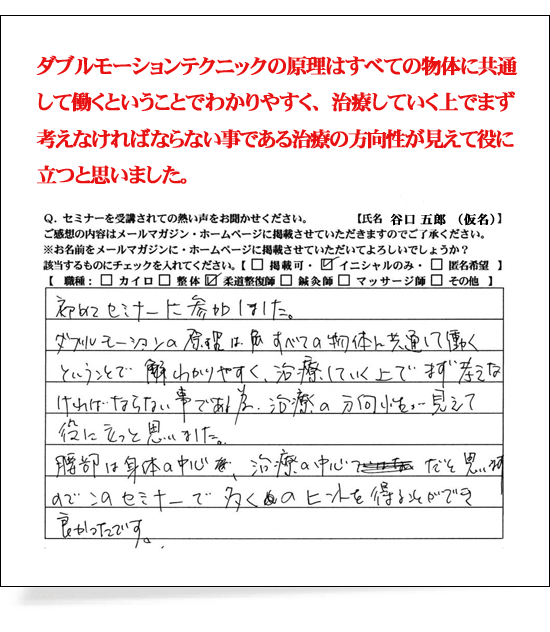 ダブルモーションテクニックの原理はすべての物体に共通
して働くということでわかりやすく、治療していく上でまず
考えなければならない事である治療の方向性が見えて役に
立つと思いました。
Q. セミナーを受講されての熱い声をお聞かせください。 【氏名 谷口 五郎 （仮名）】
ご感想の内容はメールマガジン・ホームページに掲載させていただきますのでご了承ください。
※お名前をメールマガジンに・ホームページに掲載させていただいてよろしいでしょうか？
該当するものにチェックを入れてください。【 □ 掲載可・ ☑ イニシャルのみ・ □ 匿名希望 】
【 職種： □ カイロ □ 整体 ☑ 柔道整復師 □ 鍼灸師 □ マッサージ師 □ その他 】
初めてセミナーに参加しました。
ダブルモーションの原理は すべての物体に共通して働く
ということで 解わかりやすく、治療していく上で まず考えな
ければならない事である 治療の方向性が見えて
役に立つと思いました。
腰部は身体の中心 治療の中心 だと思います
のでこのセミナーで多くのヒントを得ることができ
良かったです。